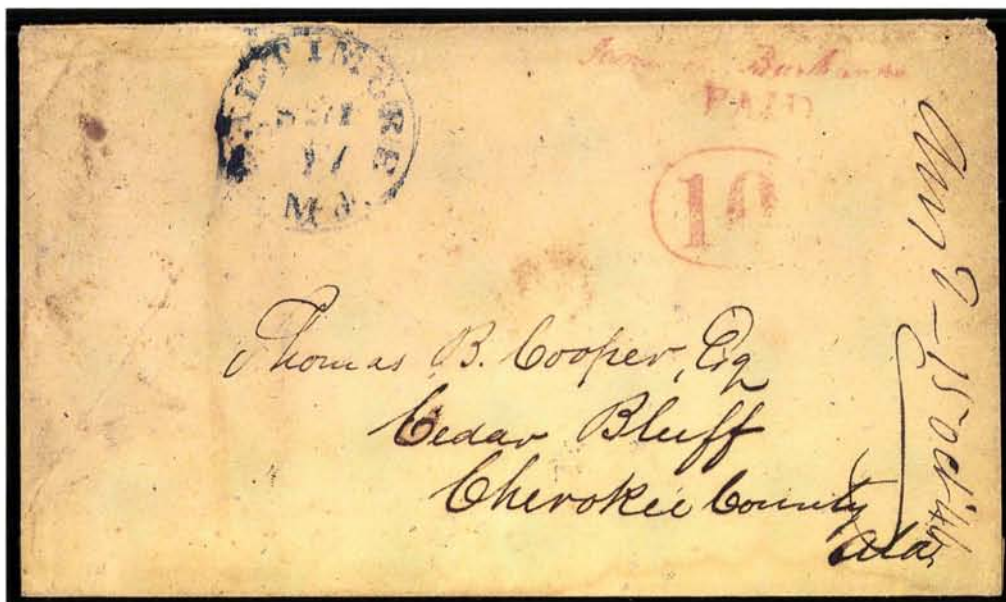 BALTIMORE
17
Md.
PAID
10
Thomas B. Cooper, Esq
Cedar Bluff
Cherokee County
Ala.
15 Oct. 46